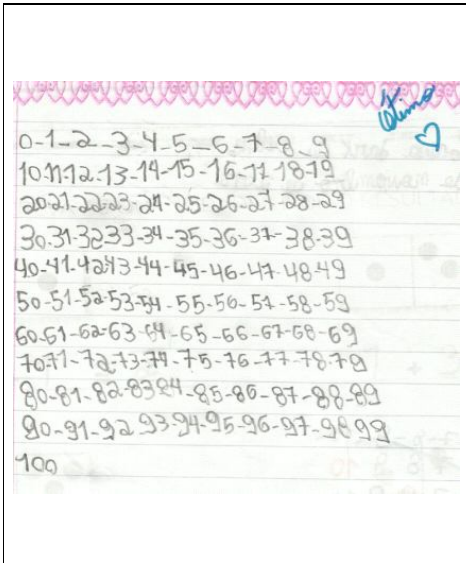 ótimo
0-1-2-3-4-5-6-7-8-9
10-11-12-13-14-15-16-17-18-19
20-21-22-23-24-25-26-27-28-29
30-31-32-33-34-35-36-37-38-39
40-41-42-43-44-45-46-47-48-49
50-51-52-53-54-55-56-57-58-59
60-61-62-63-64-65-66-67-68-69
70-71-72-73-74-75-76-77-78-79
80-81-82-83-84-85-86-87-88-89
90-91-92-93-94-95-96-97-98-99
100